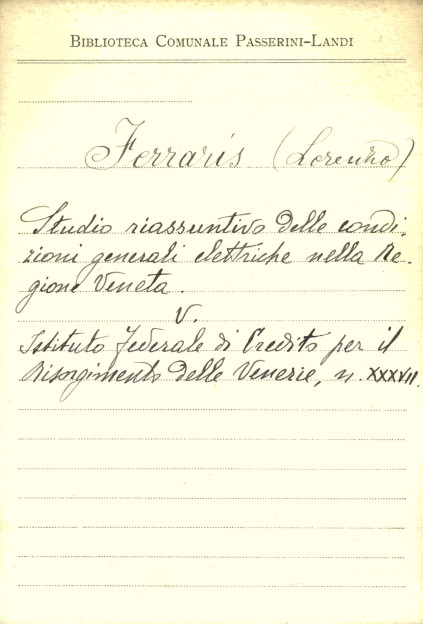 BIBLIOTECA COMUNALE PASSERINI-LANDI
Ferraris (Lorenzo)
Studio riassuntivo delle condi-
zioni generali elettriche nella Re-
gione Veneta.
V.
Istituto Federale di Credito per il
Risorgimento delle Venezie, n. XXXVII.